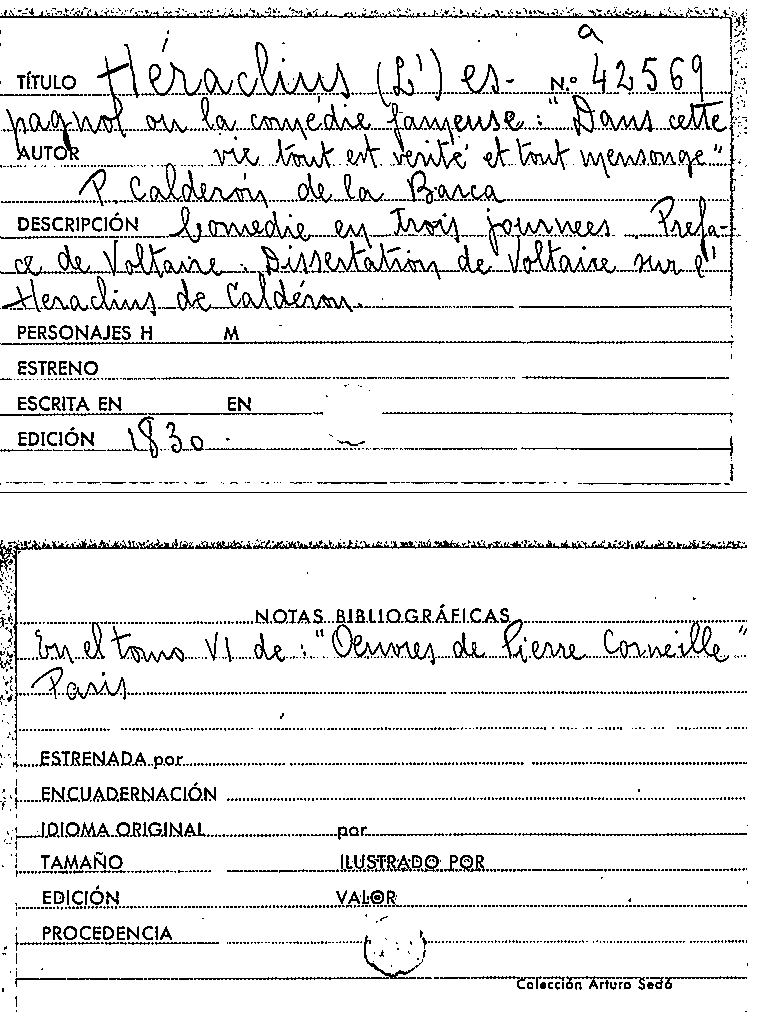 a
TÍTULO Héraclius (L') es- N.º 42569
pagnol ou la comédie fameuse: "Dans cette
AUTOR vie tout est verité et tout mensonge"
P. Calderón de la Barca
DESCRIPCIÓN Comedie en trois journees. Prefa-
ce de Voltaire. Dissertation de Voltaire sur l'
Heraclius de Caldéron.
PERSONAJES H M
ESTRENO
ESCRITA EN EN
EDICIÓN 1830.
NOTAS BIBLIOGRÁFICAS
En el tomo VI de: "Oeuvres de Pierre Corneille"
Paris
ESTRENADA por
ENCUADERNACIÓN
IDIOMA ORIGINAL por
TAMAÑO ILUSTRADO POR
EDICIÓN VALOR
PROCEDENCIA
Colección Arturo Sedó